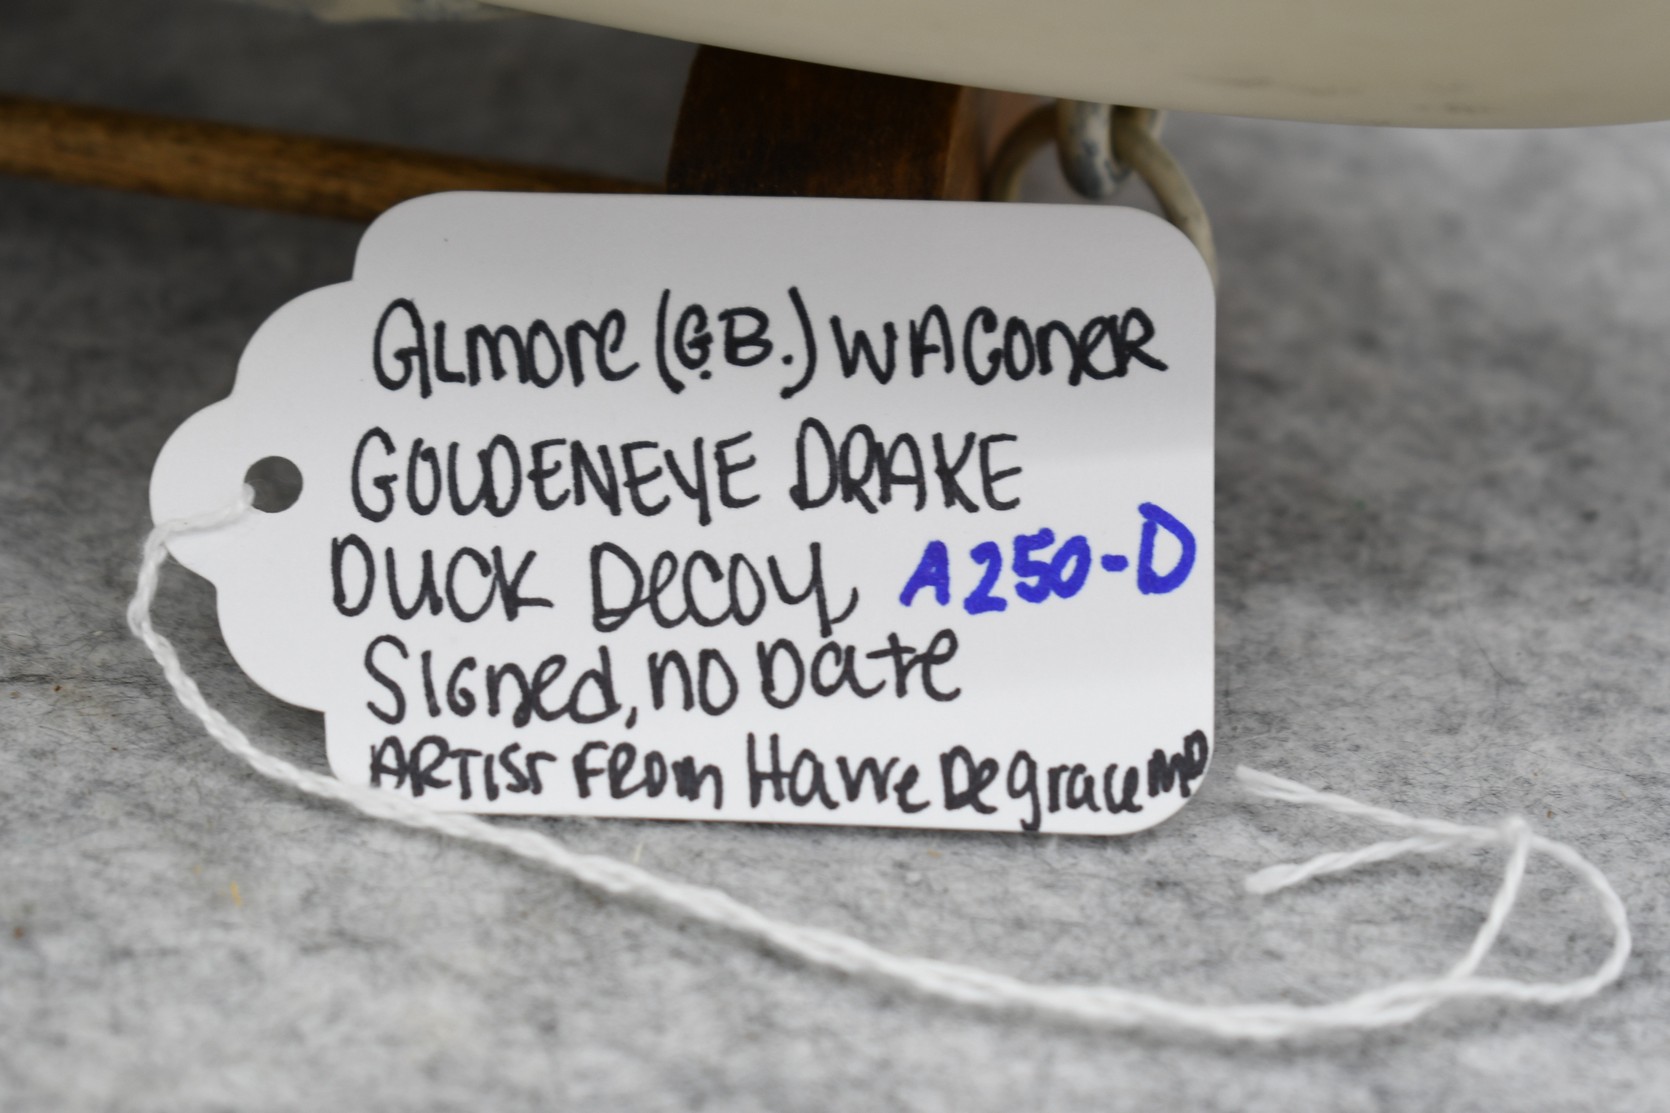 Gilmore (G.B.) WAGONER
GOLDENEYE DRAKE
DUCK Decoy A250-D
Signed, no Date
ARTIST From Havre De grace MD